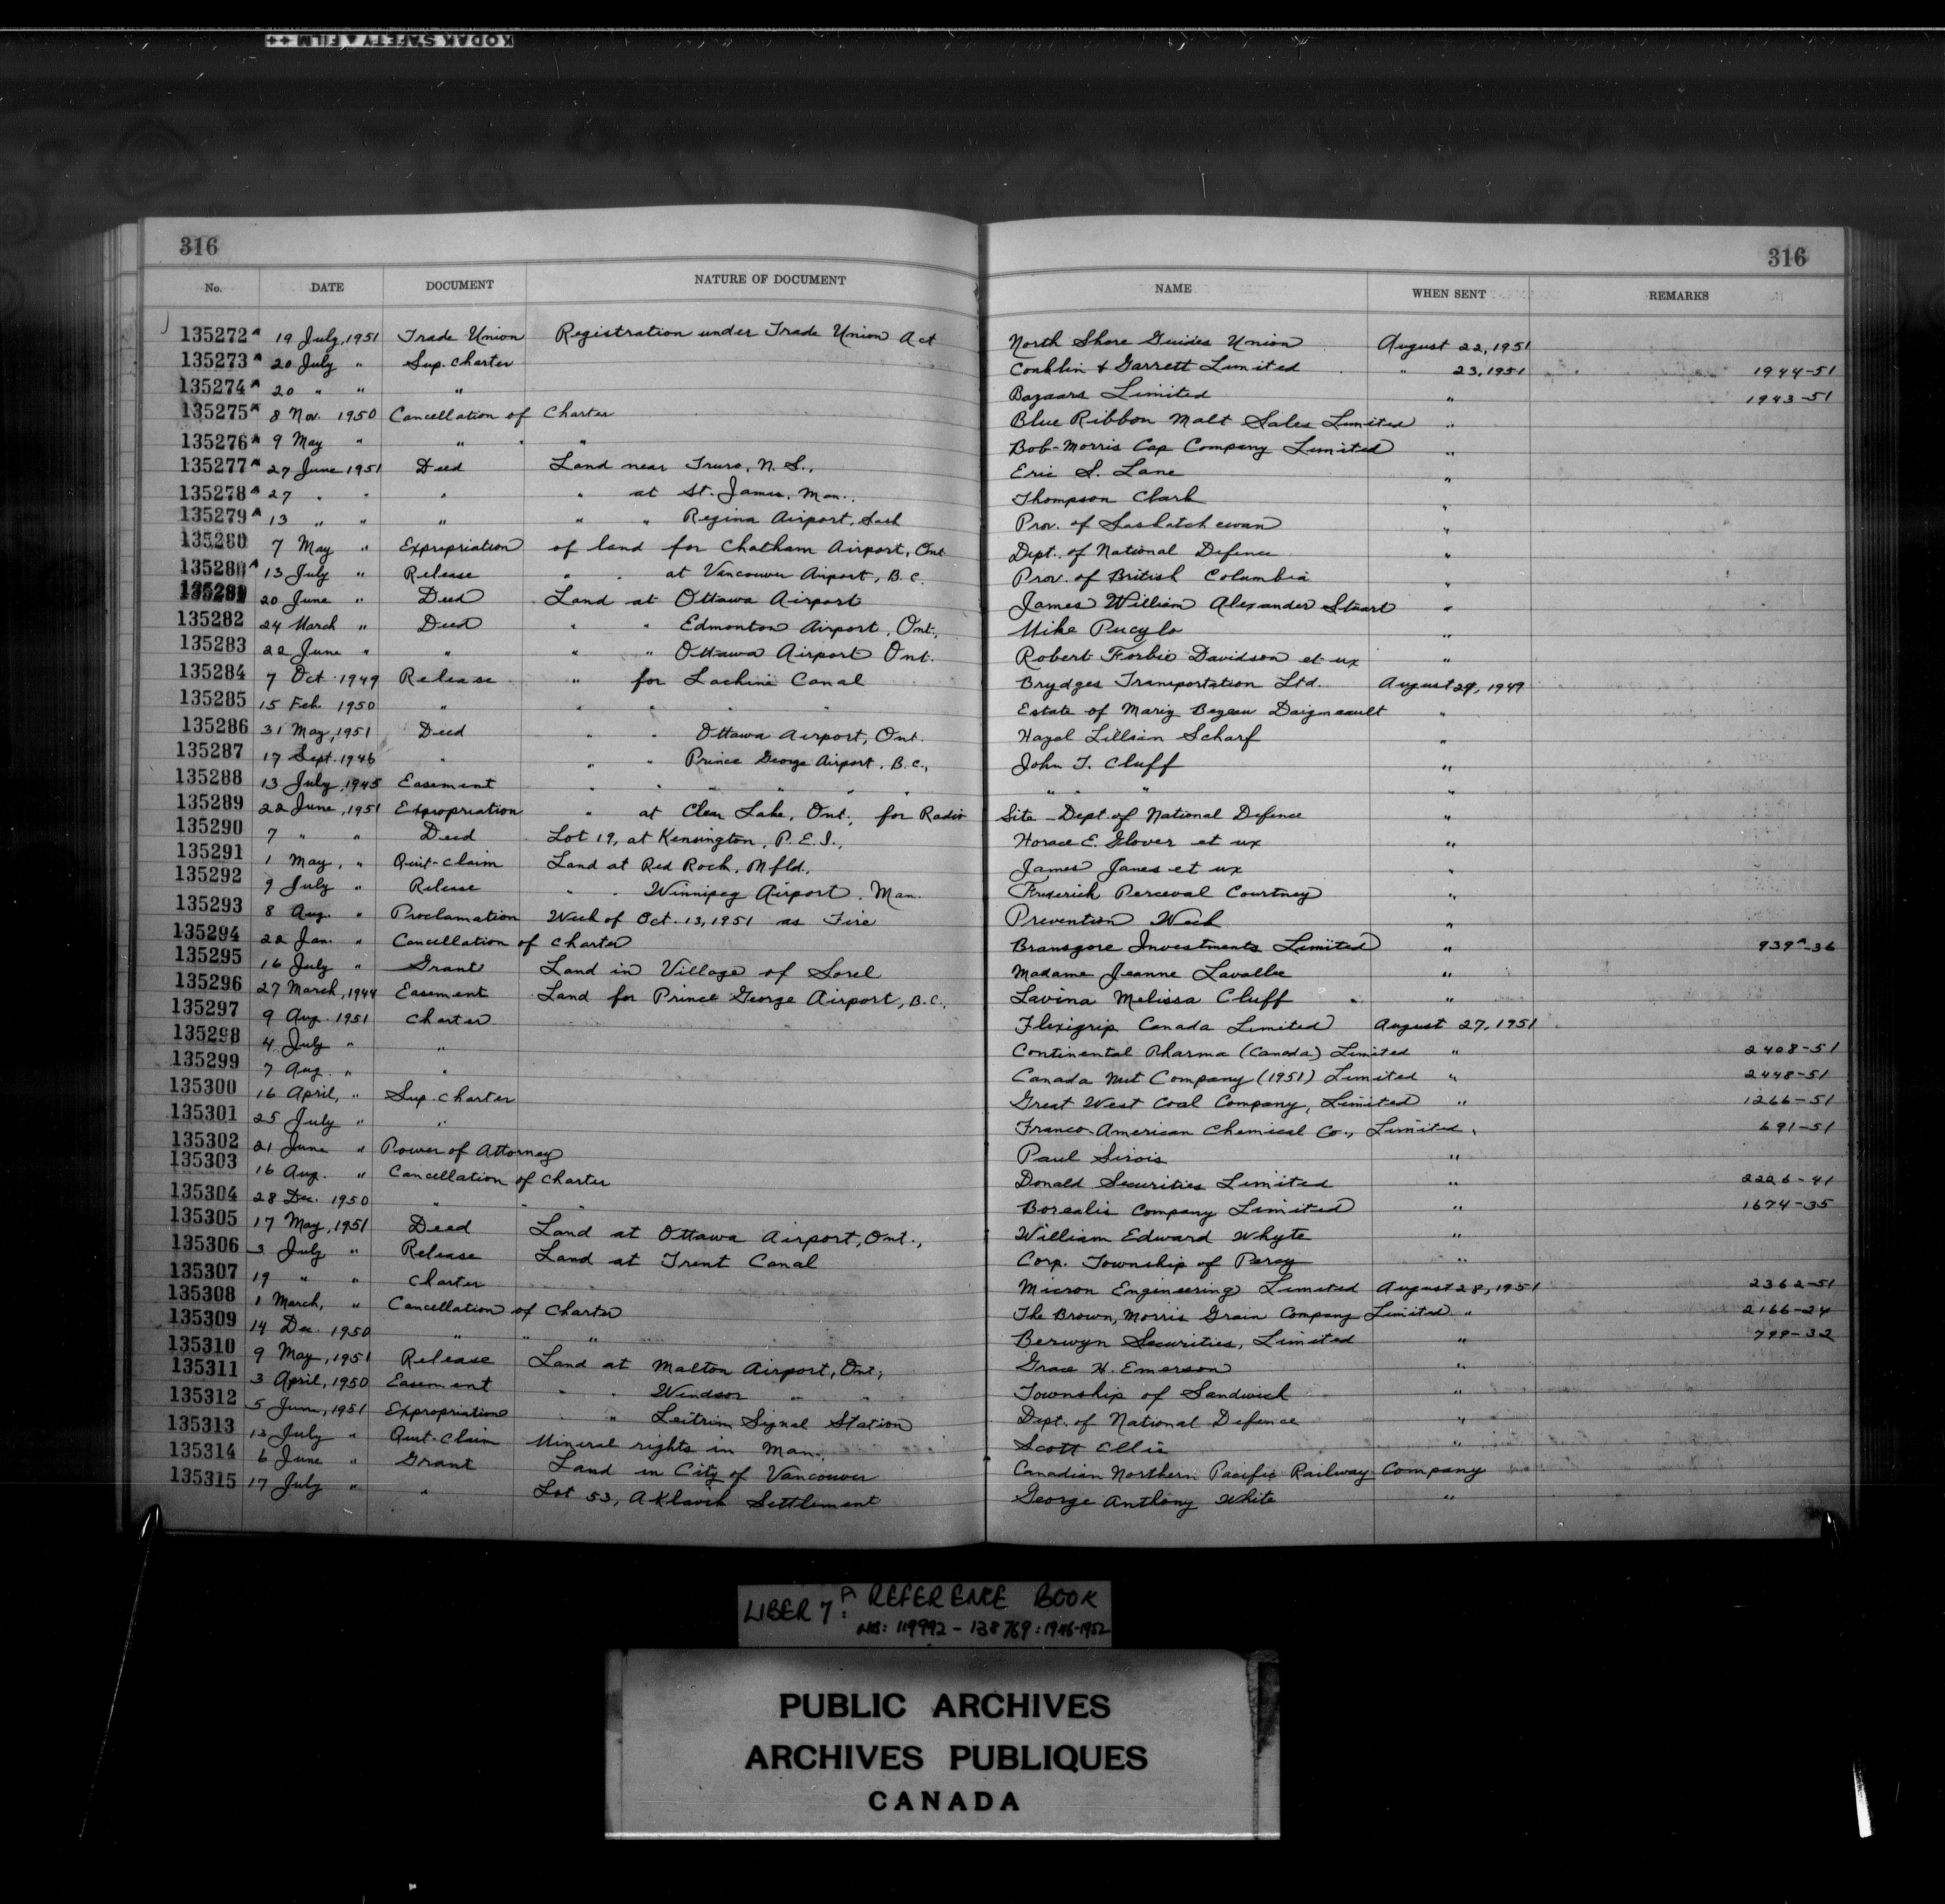 KODAK SAFETY ▲ FILM ++
316 316
No. DATE DOCUMENT NATURE OF DOCUMENT NAME WHEN SENT REMARKS
135272ᴬ 19 July, 1951 Trade Union Registration under Trade Union Act North Shore Guides Union August 22, 1951
135273ᴬ 20 July " Sup. Charter Conklin & Garrett Limited " 23, 1951 1944-51
135274ᴬ 20 " " " Bazaars Limited " 1943-51
135275ᴬ 8 Nov. 1950 Cancellation of Charter Blue Ribbon Malt Sales Limited "
135276ᴬ 9 May " " " " Bob-Morris Cap Company Limited "
135277ᴬ 27 June 1951 Deed Land near Truro, N.S., Eric S. Lane "
135278ᴬ 27 " " " " at St. James, Man., Thompson Clark "
135279ᴬ 13 " " " " " Regina Airport, Sask Prov. of Saskatchewan "
135280 7 May " Expropriation of land for Chatham Airport, Ont Dept. of National Defence "
135280ᴬ 13 July " Release " " at Vancouver Airport, B.C. Prov. of British Columbia "
135281 20 June " Deed Land at Ottawa Airport James William Alexander Stuart "
135282 24 March " Deed " " Edmonton Airport, Ont., Mike Pucylo "
135283 22 June " " " " Ottawa Airport Ont. Robert Forbie Davidson et ux "
135284 7 Oct. 1949 Release " for Lachine Canal Brydges Transportation Ltd. August 29, 1949
135285 15 Feb. 1950 " " " " Estate of Daigneault "
135286 31 May, 1951 Deed " " Ottawa Airport, Ont. Hazel Lillian Scharf "
135287 17 Sept. 1946 " " " Prince George Airport, B.C., John T. Cluff "
135288 13 July, 1945 Easement " " " " " " " " "
135289 22 June, 1951 Expropriation " at Clear Lake, Ont., for Radio Site - Dept. of National Defence "
135290 7 " " Deed Lot 19, at Kensington, P.E.I., Horace E. Glover et ux "
135291 1 May, " Quit-Claim Land at Red Rock, Nfld., James Janes et ux "
135292 9 July " Release " " Winnipeg Airport, Man. Frederick Perceval Courtney "
135293 8 Aug. " Proclamation Week of Oct. 13, 1951 as Fire Prevention Week "
135294 22 Jan. " Cancellation of Charter Bransgore Investments Limited " 939ᴬ-36
135295 16 July " Grant Land in Village of Sorel Madame Jeanne Lavallee "
135296 27 March, 1944 Easement Land for Prince George Airport, B.C. Lavina Melissa Cluff "
135297 9 Aug. 1951 Charter Flexigrip Canada Limited August 27, 1951
135298 4 July " " Continental Pharma (Canada) Limited " 2408-51
135299 7 Aug. " " Canada Nut Company (1951) Limited " 2448-51
135300 16 April, " Sup. Charter Great West Coal Company, Limited " 1266-51
135301 25 July " " Franco-American Chemical Co., Limited " 691-51
135302 21 June " Power of Attorney Paul Sirois "
135303 16 Aug. " Cancellation of Charter Donald Securities Limited " 2226-41
135304 28 Dec. 1950 " " " Borealis Company Limited " 1674-35
135305 17 May, 1951 Deed Land at Ottawa Airport, Ont., William Edward Whyte "
135306 3 July " Release Land at Trent Canal Corp. Township of Percy "
135307 19 " " Charter Micron Engineering Limited August 28, 1951 2362-51
135308 1 March, " Cancellation of Charter The Brown, Morris Grain Company Limited " 2166-24
135309 14 Dec. 1950 " " " Berwyn Securities, Limited " 799-32
135310 9 May, 1951 Release Land at Malton Airport, Ont., Grace H. Emerson "
135311 3 April, 1950 Easement " " Windsor " " Township of Sandwich "
135312 5 June, 1951 Expropriation " " Leitrim Signal Station Dept. of National Defence "
135313 13 July " Quit-Claim Mineral rights in Man. Scott Ellis "
135314 6 June " Grant Land in City of Vancouver Canadian Northern Pacific Railway Company
135315 17 July " " Lot 53, Aklavik Settlement George Anthony White "
LIBER 7ᴬ: REFERENCE BOOK
NOS: 119992 - 138769: 1946-1952
PUBLIC ARCHIVES
ARCHIVES PUBLIQUES
CANADA